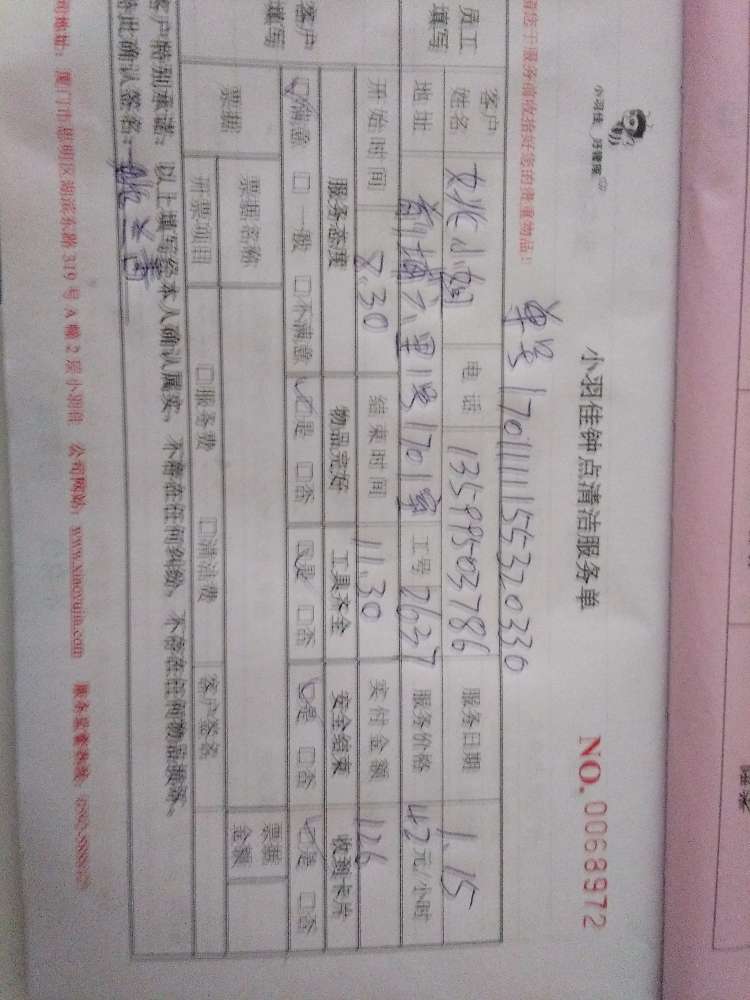 小羽佳 好健康
小羽佳钟点清洁服务单
NO. 0068972
请您于服务前收拾好您的贵重物品!
单号 170111155320330
员工填写
客户姓名 姚小姐 电话 13599503786 服务日期 1.15
地址 前埔六里1号1701室 工号 2637 服务价格 42元/小时
开始时间 8.30 结束时间 11.30 实付金额 126
客户填写
服务态度 物品完好 工具齐全 安全结束 收到卡片
☑满意 □一般 □不满意 ☑是 □否 ☑是 □否 ☑是 □否 ☑是 □否
票据 票据名称 票据金额
开票项目 □服务费 □清洁费 客户签名
客户特别承诺:以上填写经本人确认属实,不存在任何纠纷,不存在任何物品损坏。
特此确认签名:
司地址:厦门市思明区湖滨东路319号A幢2层小羽佳 公司网站:www.xiaoyujia.com